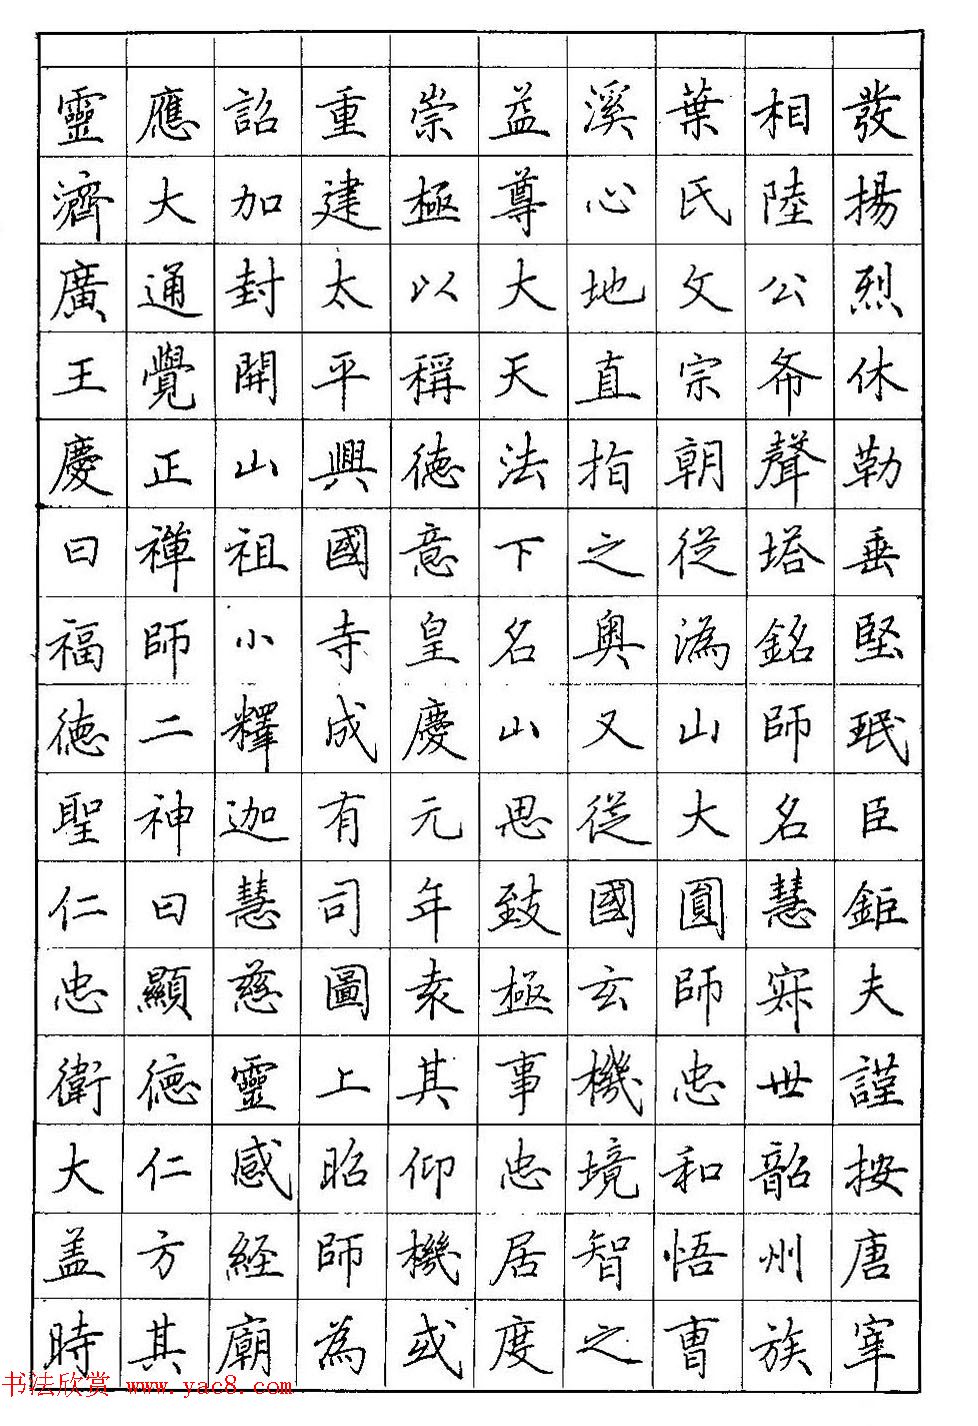 發揚烈休勒垂堅珉臣鉅夫謹按唐宰
相陸公希聲塔銘師名慧寂世韶州族
葉氏文宗朝從溈山大圓師忠和悟曹
溪心地直指之奧又從國玄機境智之
益尊大天法下名山思致極事忠居度
崇極以稱德意皇慶元年袁其仰機或
重建太平興國寺成有司圖上昭師為
詔加封開山祖小釋迦慧慈靈感經廟
應大通覺正禪師二神曰顯德仁方其
靈濟廣王慶曰福德聖仁忠衛大盖時
书法欣赏 www.yac8.com